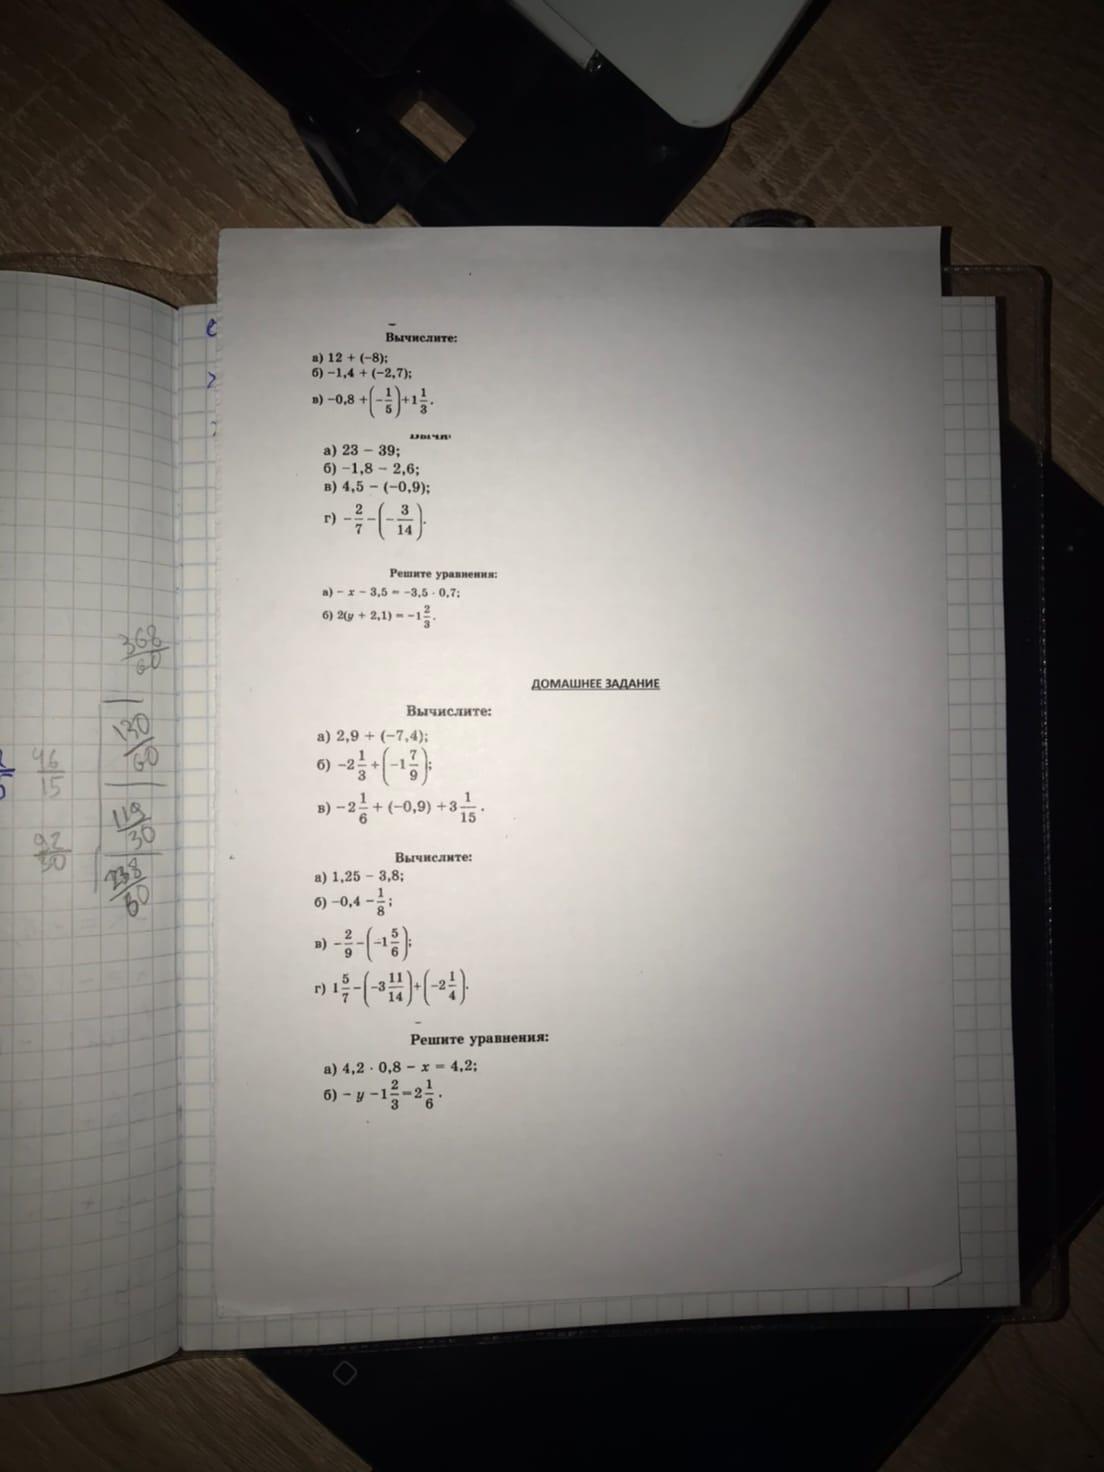 Вычислите:
а) 12 + (−8);
б) −1,4 + (−2,7);
в) −0,8 + (−1/5) + 1 1/3.
а) 23 − 39;
б) −1,8 − 2,6;
в) 4,5 − (−0,9);
г) −2/7 − (−3/14).
Решите уравнения:
а) − x − 3,5 = −3,5 · 0,7;
б) 2(y + 2,1) = −1 2/3.
ДОМАШНЕЕ ЗАДАНИЕ
Вычислите:
а) 2,9 + (−7,4);
б) −2 1/3 + (−1 7/9);
в) −2 1/6 + (−0,9) + 3 1/15.
Вычислите:
а) 1,25 − 3,8;
б) −0,4 − 1/8;
в) −2/9 − (−1 5/6);
г) 1 5/7 − (−3 11/14) + (−2 1/4).
Решите уравнения:
а) 4,2 · 0,8 − x = 4,2;
б) − y − 1 2/3 = 2 1/6.
368/60
130/60
119/30
46/15
92/30